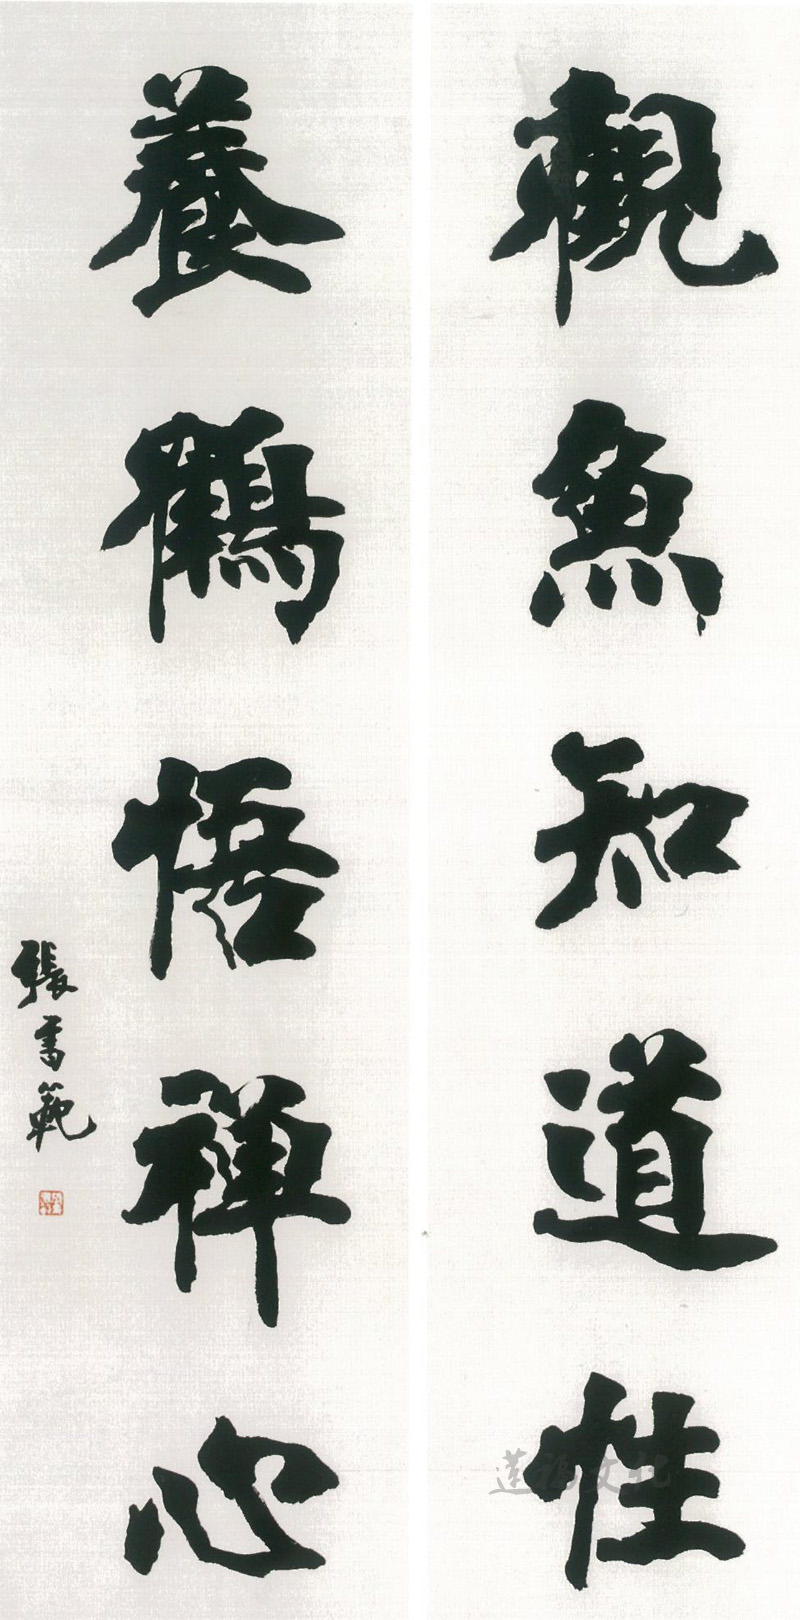 觀魚知道性
養鶴悟禪心
張書範